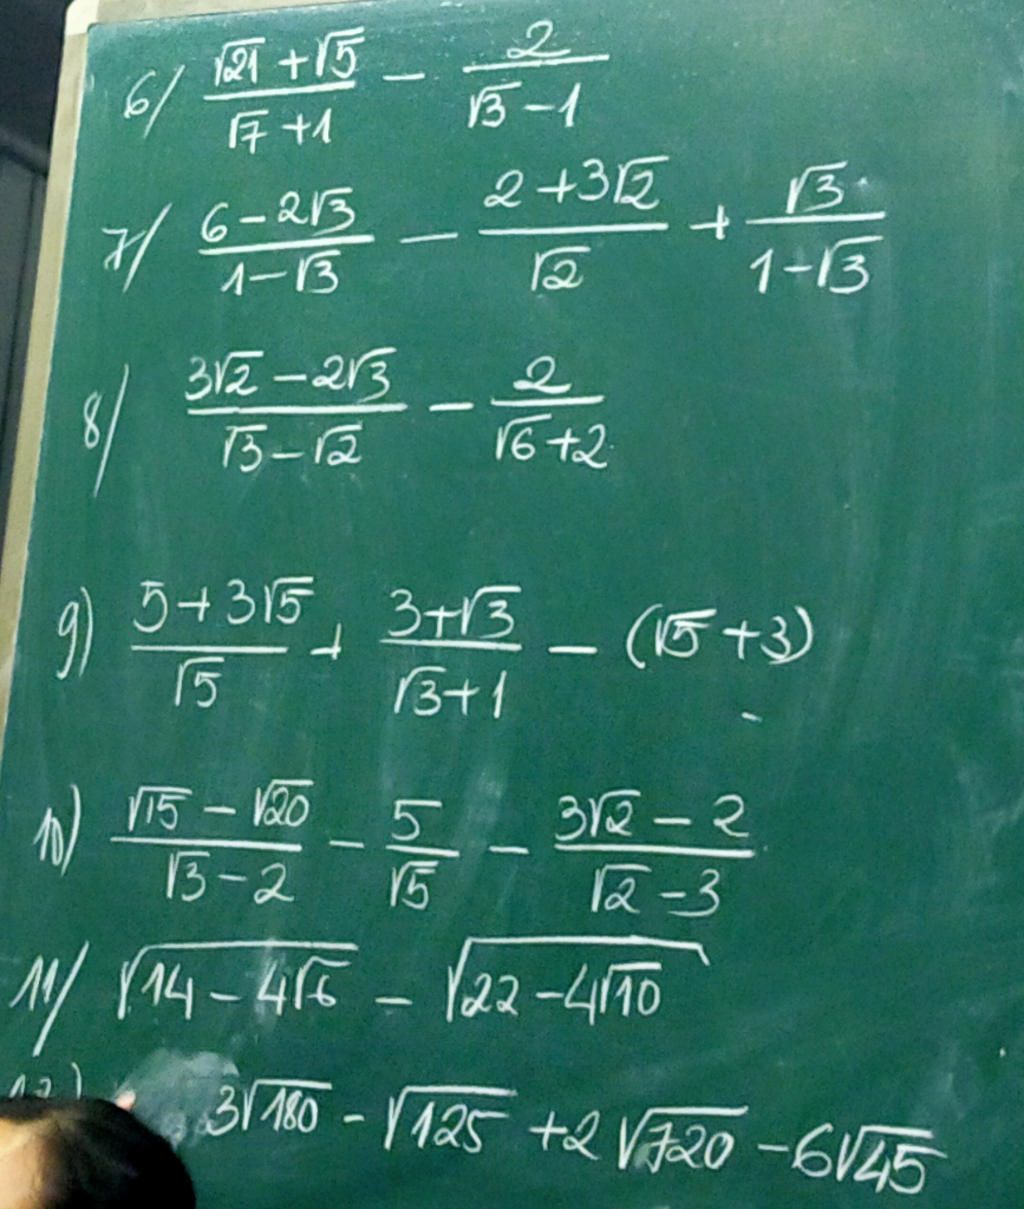 6/ (√21 + √5)/(√7 + 1) - 2/(√3 - 1)
7/ (6 - 2√3)/(1 - √3) - (2 + 3√2)/√2 + √3/(1 - √3)
8/ (3√2 - 2√3)/(√3 - √2) - 2/(√6 + 2)
9) (5 + 3√5)/√5 + (3 + √3)/(√3 + 1) - (√5 + 3)
10) (√15 - √20)/(√3 - 2) - 5/√5 - (3√2 - 2)/(√2 - 3)
11/ √(14 - 4√6) - √(22 - 4√10)
3√180 - √125 + 2√720 - 6√45